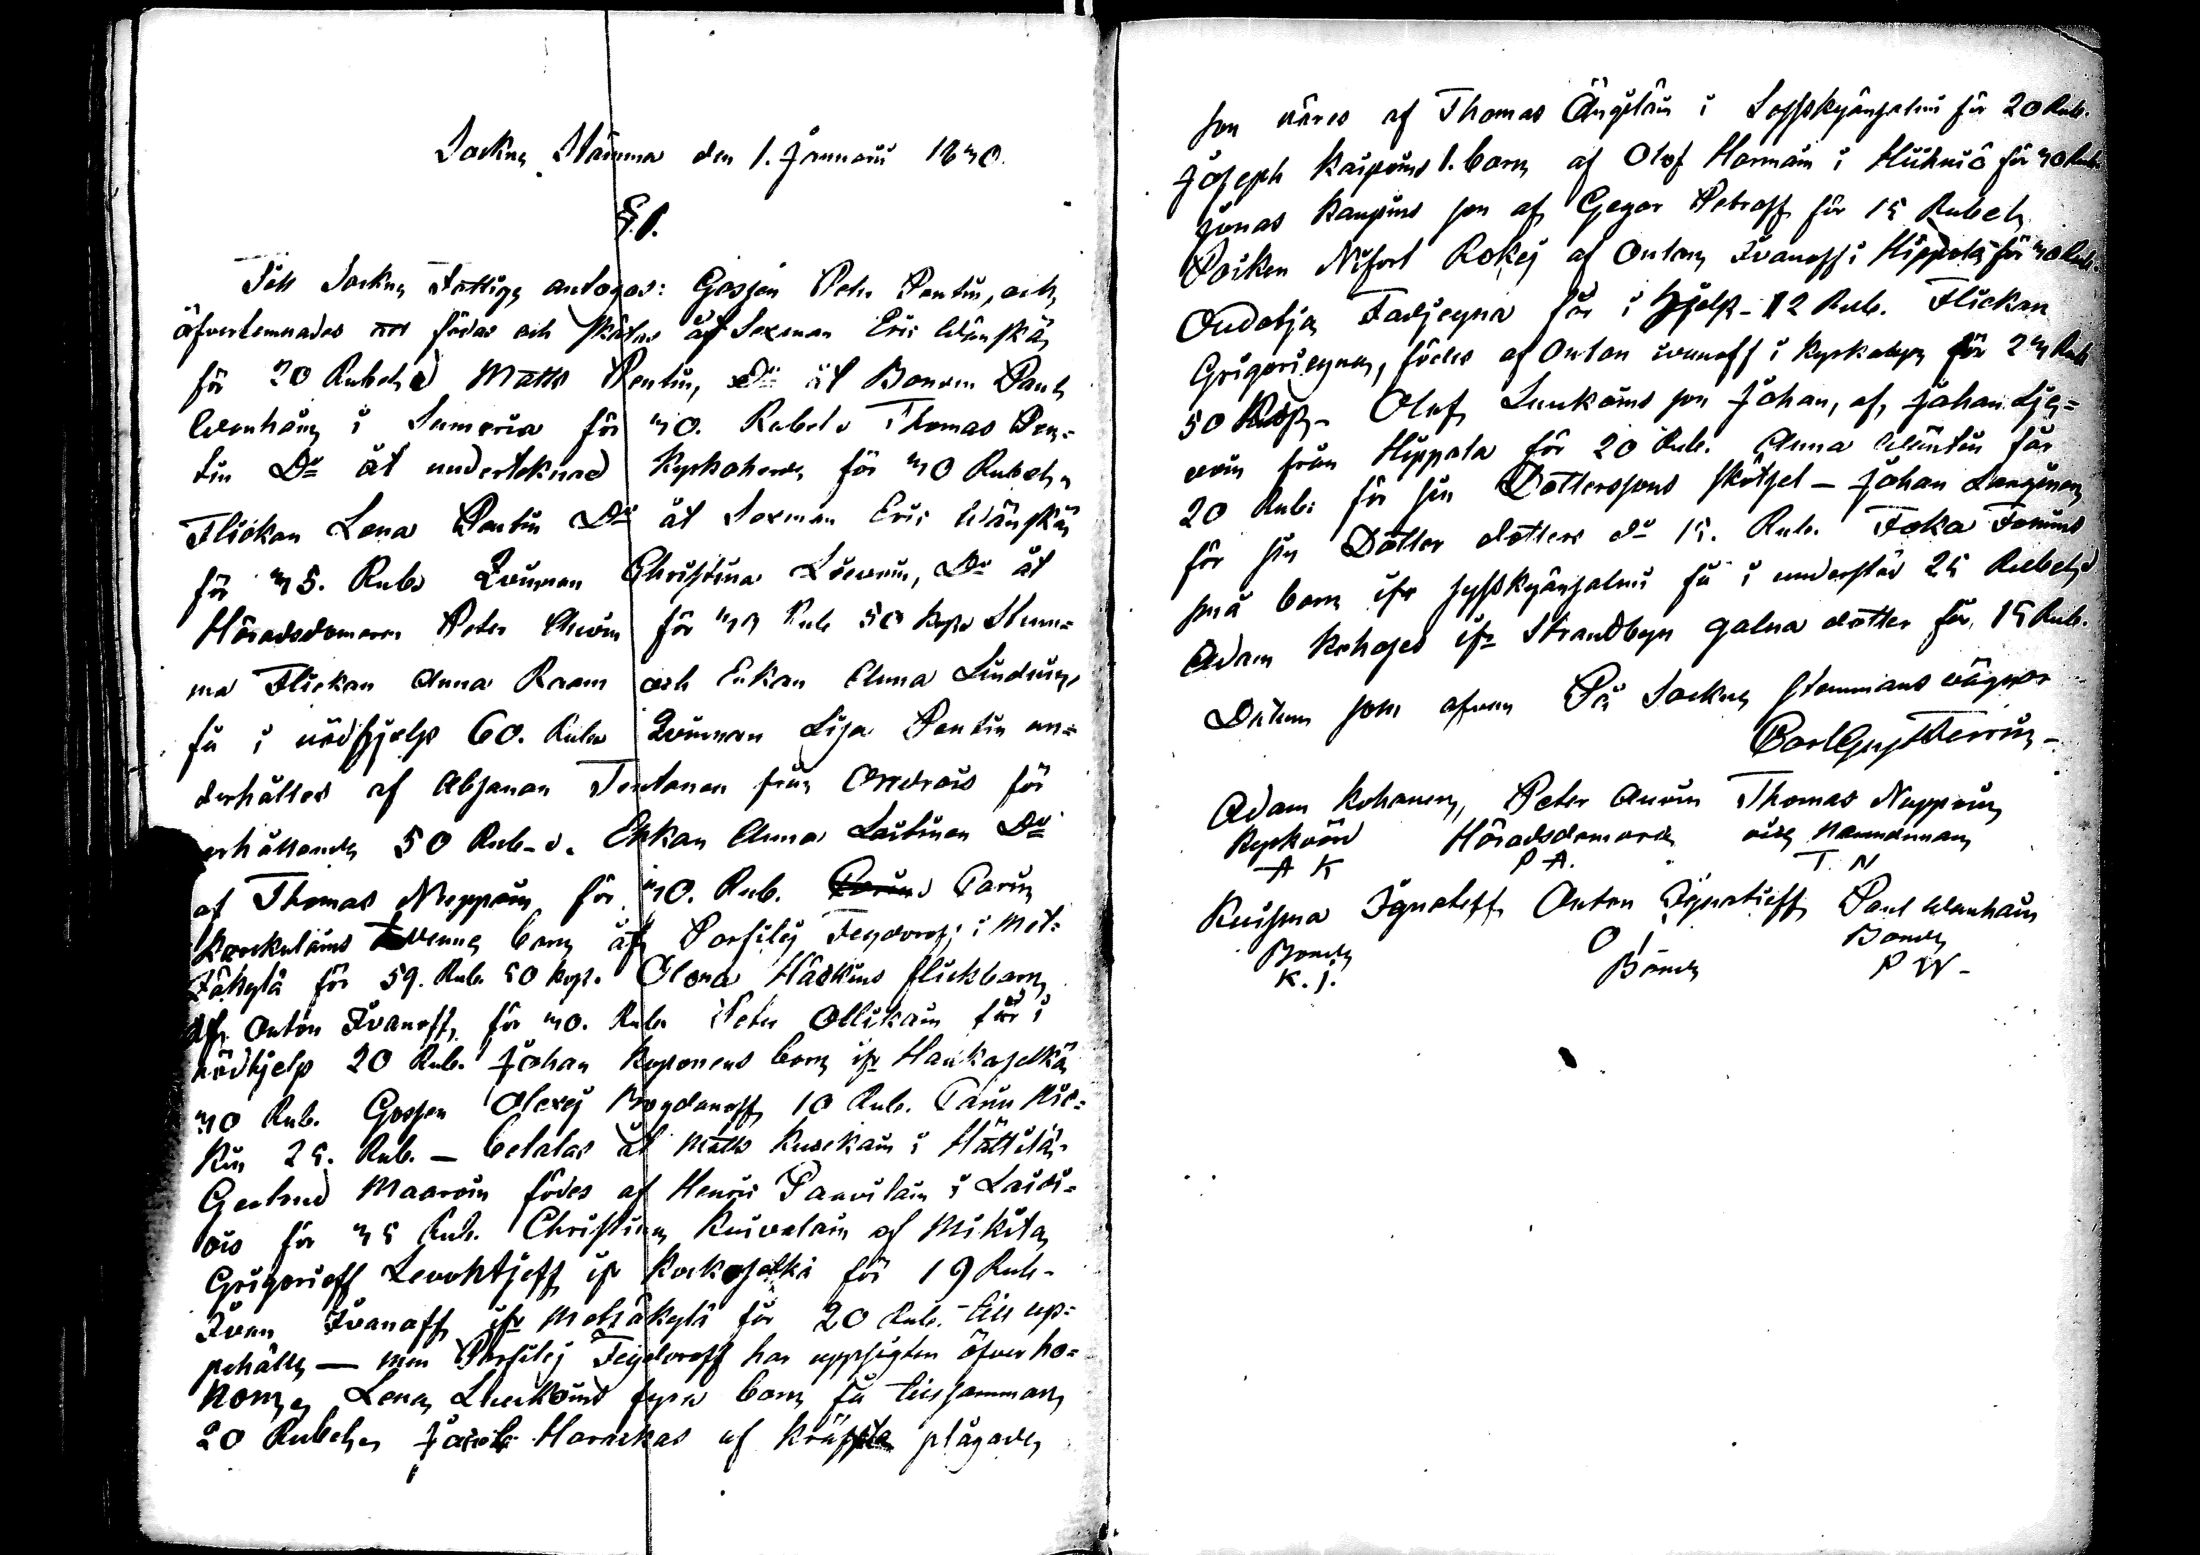 Sockne Stämma den 1. Januarii 1840.
§.1.
Till Sockne Fattige antogos: Gossen Peter Pentin, och
öfverlemnades att födas och skötas åt Sexman Eric Wänskä
för 20 Rubel, Matts Pentin, Do åt Bonden Paul
Wanhain i Sumeria för 40. Rubel. Thomas Pen=
tin Do åt underteknad Kyrkoherde för 40 Rubel,
Flickan Lena Pentin Do åt Sexman Eric Wänskä
för 45. Rub. Qvinnan Christina Do åt
Häradsdomaren Peter Auvin för Rub 50 kop. Stum=
ma Flickan Anna Raam och Enkan Anna
få i nödhjelp 60. Rub. Qvinnan Lisa Pentin un=
derhålles af Tentonen från för
erhållande 50 Rub. Enkan Anna Laitinen Do
af Thomas Nuppoin för 40. Rub. Parin
barn åt Parfilej Feydoroff i Met=
säkylä för 59. Rub. 50 kop. Olena Häskins flickbarn
af Anton Ivanoff för 40. Rub. Peter Ollikain får i
nödhjelp 20 Rub. Johan Koponens barn ifr Haukaselkä
40 Rub. Gossen Alexej Bogdanoff 10 Rub. Panu Kic=
kin 25. Rub. — betalas åt Matts Kuickain i Hättilä.
Gertrud Maaroin födes af Henric Pauvilain i
för 45 Rub. Christina Kuivalain af Mikita
Grigorieff Levontjeff ifr Kockoselkä för 19 Rub.
Ivan Ivanoff ifr Metsäkylä för 20 Rub. till up=
pehälle — men Parfilej Feydoroff har uppsigten öfver ho=
nom, Lena Luukoins fyra barn få tillsamman
20 Rubel, Jacob Harackas af plågade
son näres af Thomas Ängeläin i Soffskijänsalmi för 20 Rub.
Joseph Kaipoins 1. barn af Olof Hornain i för 40 Rub.
Jonas Kaupins son af Gegor Petroff för 15 Rubel,
Poiken Nifort Rokej af Anton Ivanoff i Hippola för 40 Rub.
Oudotja Fadjeyna får i hjelp - 12 Rub. Flickan
Grigorieyna, födes af Anton Ivanoff i Kyrkobyn för 24 Rub
50 Kop. Olof Luukoins son Johan, af Johan
från Hippola för 20 Rub. Anna Wäntin får
20 Rub. för sin Dottersons skötsel — Johan
för sin Dotter dotters do 15. Rub. Foka Fomins
små barn ifr Syfskijänsalmi få i understöd 25 Rubel,
Adam Kohoses ifr Strandbyn galna dotter får 15 Rub.
Datum som ofvan På Sockne stemmans vägnar
Carl Gust
Adam Kohonen, Peter Auvin Thomas Nuppoin
Kyrkovärd Häradsdomare Nämndeman
A K P A. T. N
Kuisma Ignateff Anton Ignatieff Paul Wanhain
Bonde O I - Bonde
K. J. Bonde P W -